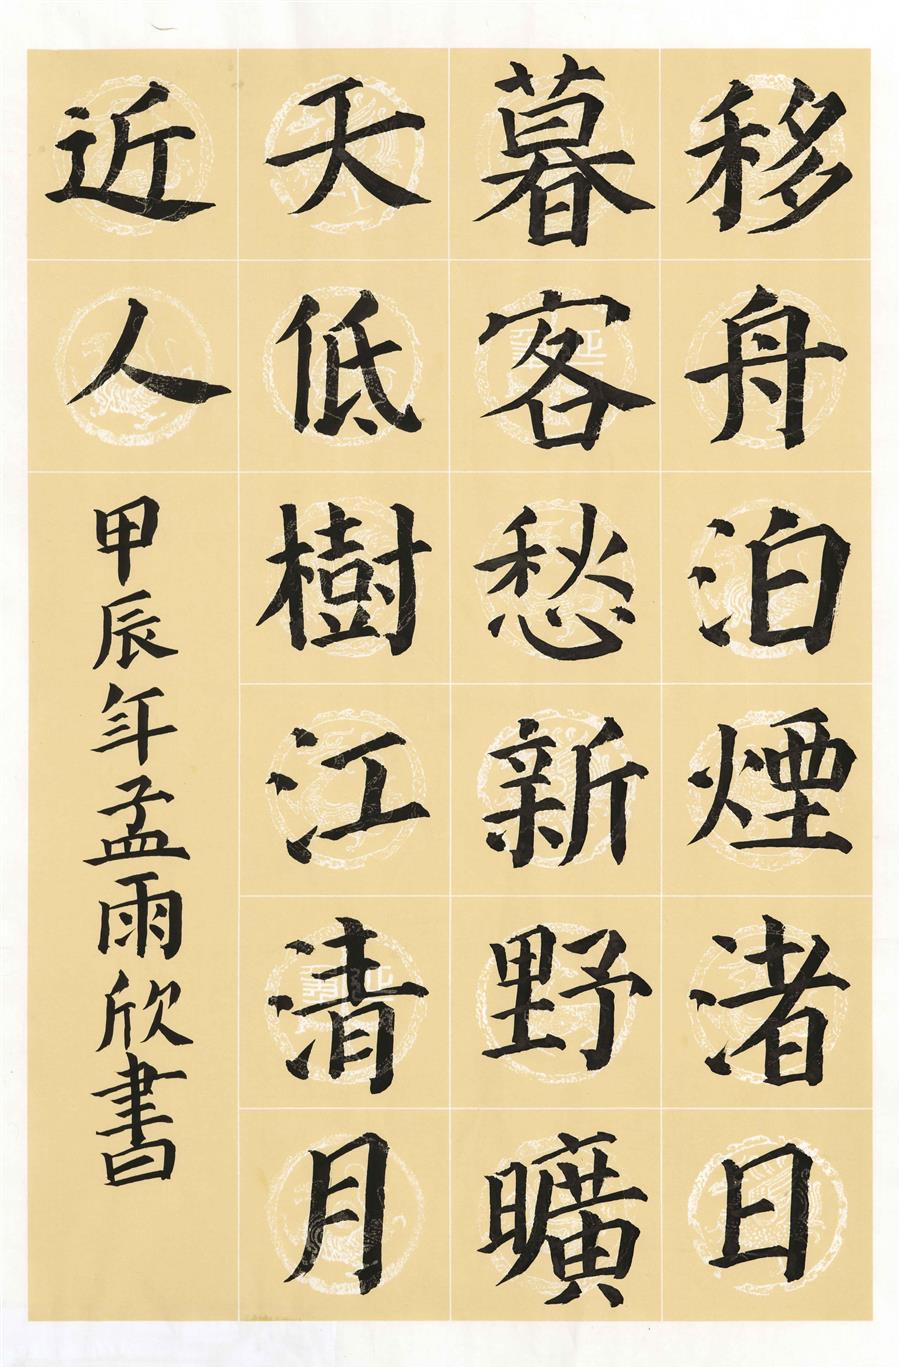 移舟泊煙渚日
暮客愁新野曠
天低樹江清月
近人
甲辰年孟雨欣書